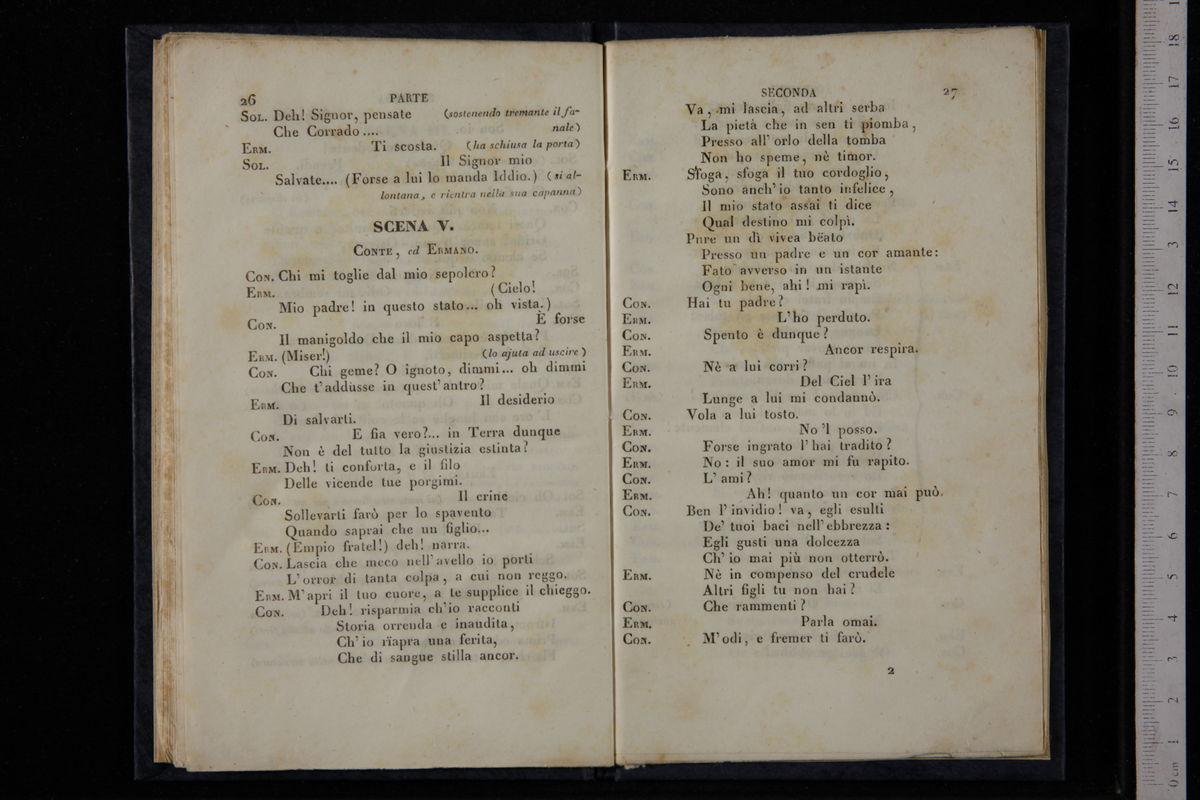 26 PARTE
SOL. Deh! Signor, pensate (sostenendo tremante il fa-
Che Corrado.... nale)
ERM. Ti scosta. (ha schiusa la porta)
SOL. Il Signor mio
Salvate.... (Forse a lui lo manda Iddio.) (si al-
lontana, e rientra nella sua capanna)
SCENA V.
CONTE, ed ERMANO.
CON. Chi mi toglie dal mio sepolcro?
ERM. (Cielo!
Mio padre! in questo stato... oh vista.)
CON. È forse
Il manigoldo che il mio capo aspetta?
ERM. (Miser!) (lo ajuta ad uscire)
CON. Chi geme? O ignoto, dimmi... oh dimmi
Che t'addusse in quest'antro?
ERM. Il desiderio
Di salvarti.
CON. E fia vero?... in Terra dunque
Non è del tutto la giustizia estinta?
ERM. Deh! ti conforta, e il filo
Delle vicende tue porgimi.
CON. Il crine
Sollevarti farò per lo spavento
Quando saprai che un figlio...
ERM. (Empio fratel!) deh! narra.
CON. Lascia che meco nell'avello io porti
L'orror di tanta colpa, a cui non reggo.
ERM. M'apri il tuo cuore, a te supplice il chieggo.
CON. Deh! risparmia ch'io racconti
Storia orrenda e inaudita,
Ch'io rïapra una ferita,
Che di sangue stilla ancor.
SECONDA 27
Va, mi lascia, ad altri serba
La pietà che in sen ti piomba,
Presso all'orlo della tomba
Non ho speme, nè timor.
ERM. Sfoga, sfoga il tuo cordoglio,
Sono anch'io tanto infelice,
Il mio stato assai ti dice
Qual destino mi colpì.
Pure un dì vivea bëato
Presso un padre e un cor amante:
Fato avverso in un istante
Ogni bene, ahi! mi rapì.
CON. Hai tu padre?
ERM. L'ho perduto.
CON. Spento è dunque?
ERM. Ancor respira.
CON. Nè a lui corri?
ERM. Del Ciel l'ira
Lunge a lui mi condannò.
CON. Vola a lui tosto.
ERM. No 'l posso.
CON. Forse ingrato l'hai tradito?
ERM. No: il suo amor mi fu rapito.
CON. L'ami?
ERM. Ah! quanto un cor mai può.
CON. Ben l'invidio! va, egli esulti
De' tuoi baci nell'ebbrezza:
Egli gusti una dolcezza
Ch'io mai più non otterrò.
ERM. Nè in compenso del crudele
Altri figli tu non hai?
CON. Che rammenti?
ERM. Parla omai.
CON. M'odi, e fremer ti farò.
2
0 cm 1 2 3 4 5 6 7 8 9 10 11 12 13 14 15 16 17 18